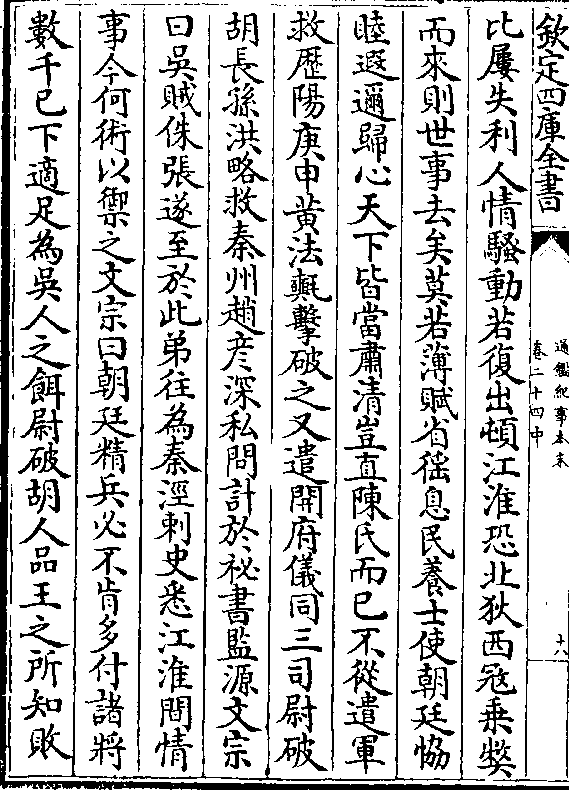 欽定四庫全書
通鑑紀事本末
卷二十四中
十八
比屢失利人情騷動若復出頓江淮恐北狄西冦乗弊
而來則世事去矣莫若薄賦省徭息民養士使朝廷恊
睦遐邇歸心天下皆當肅清豈直陳氏而已不從遣軍
救歴陽庚申黄法𣰰擊破之又遣開府儀同三司尉破
胡長孫洪略救秦州趙彦深私問計於祕書監源文宗
曰吳賊侏張遂至於此弟往為秦涇刺史悉江淮間情
事今何術以禦之文宗曰朝廷精兵必不肯多付諸將
數千已下適足為吳人之餌尉破胡人品王之所知敗